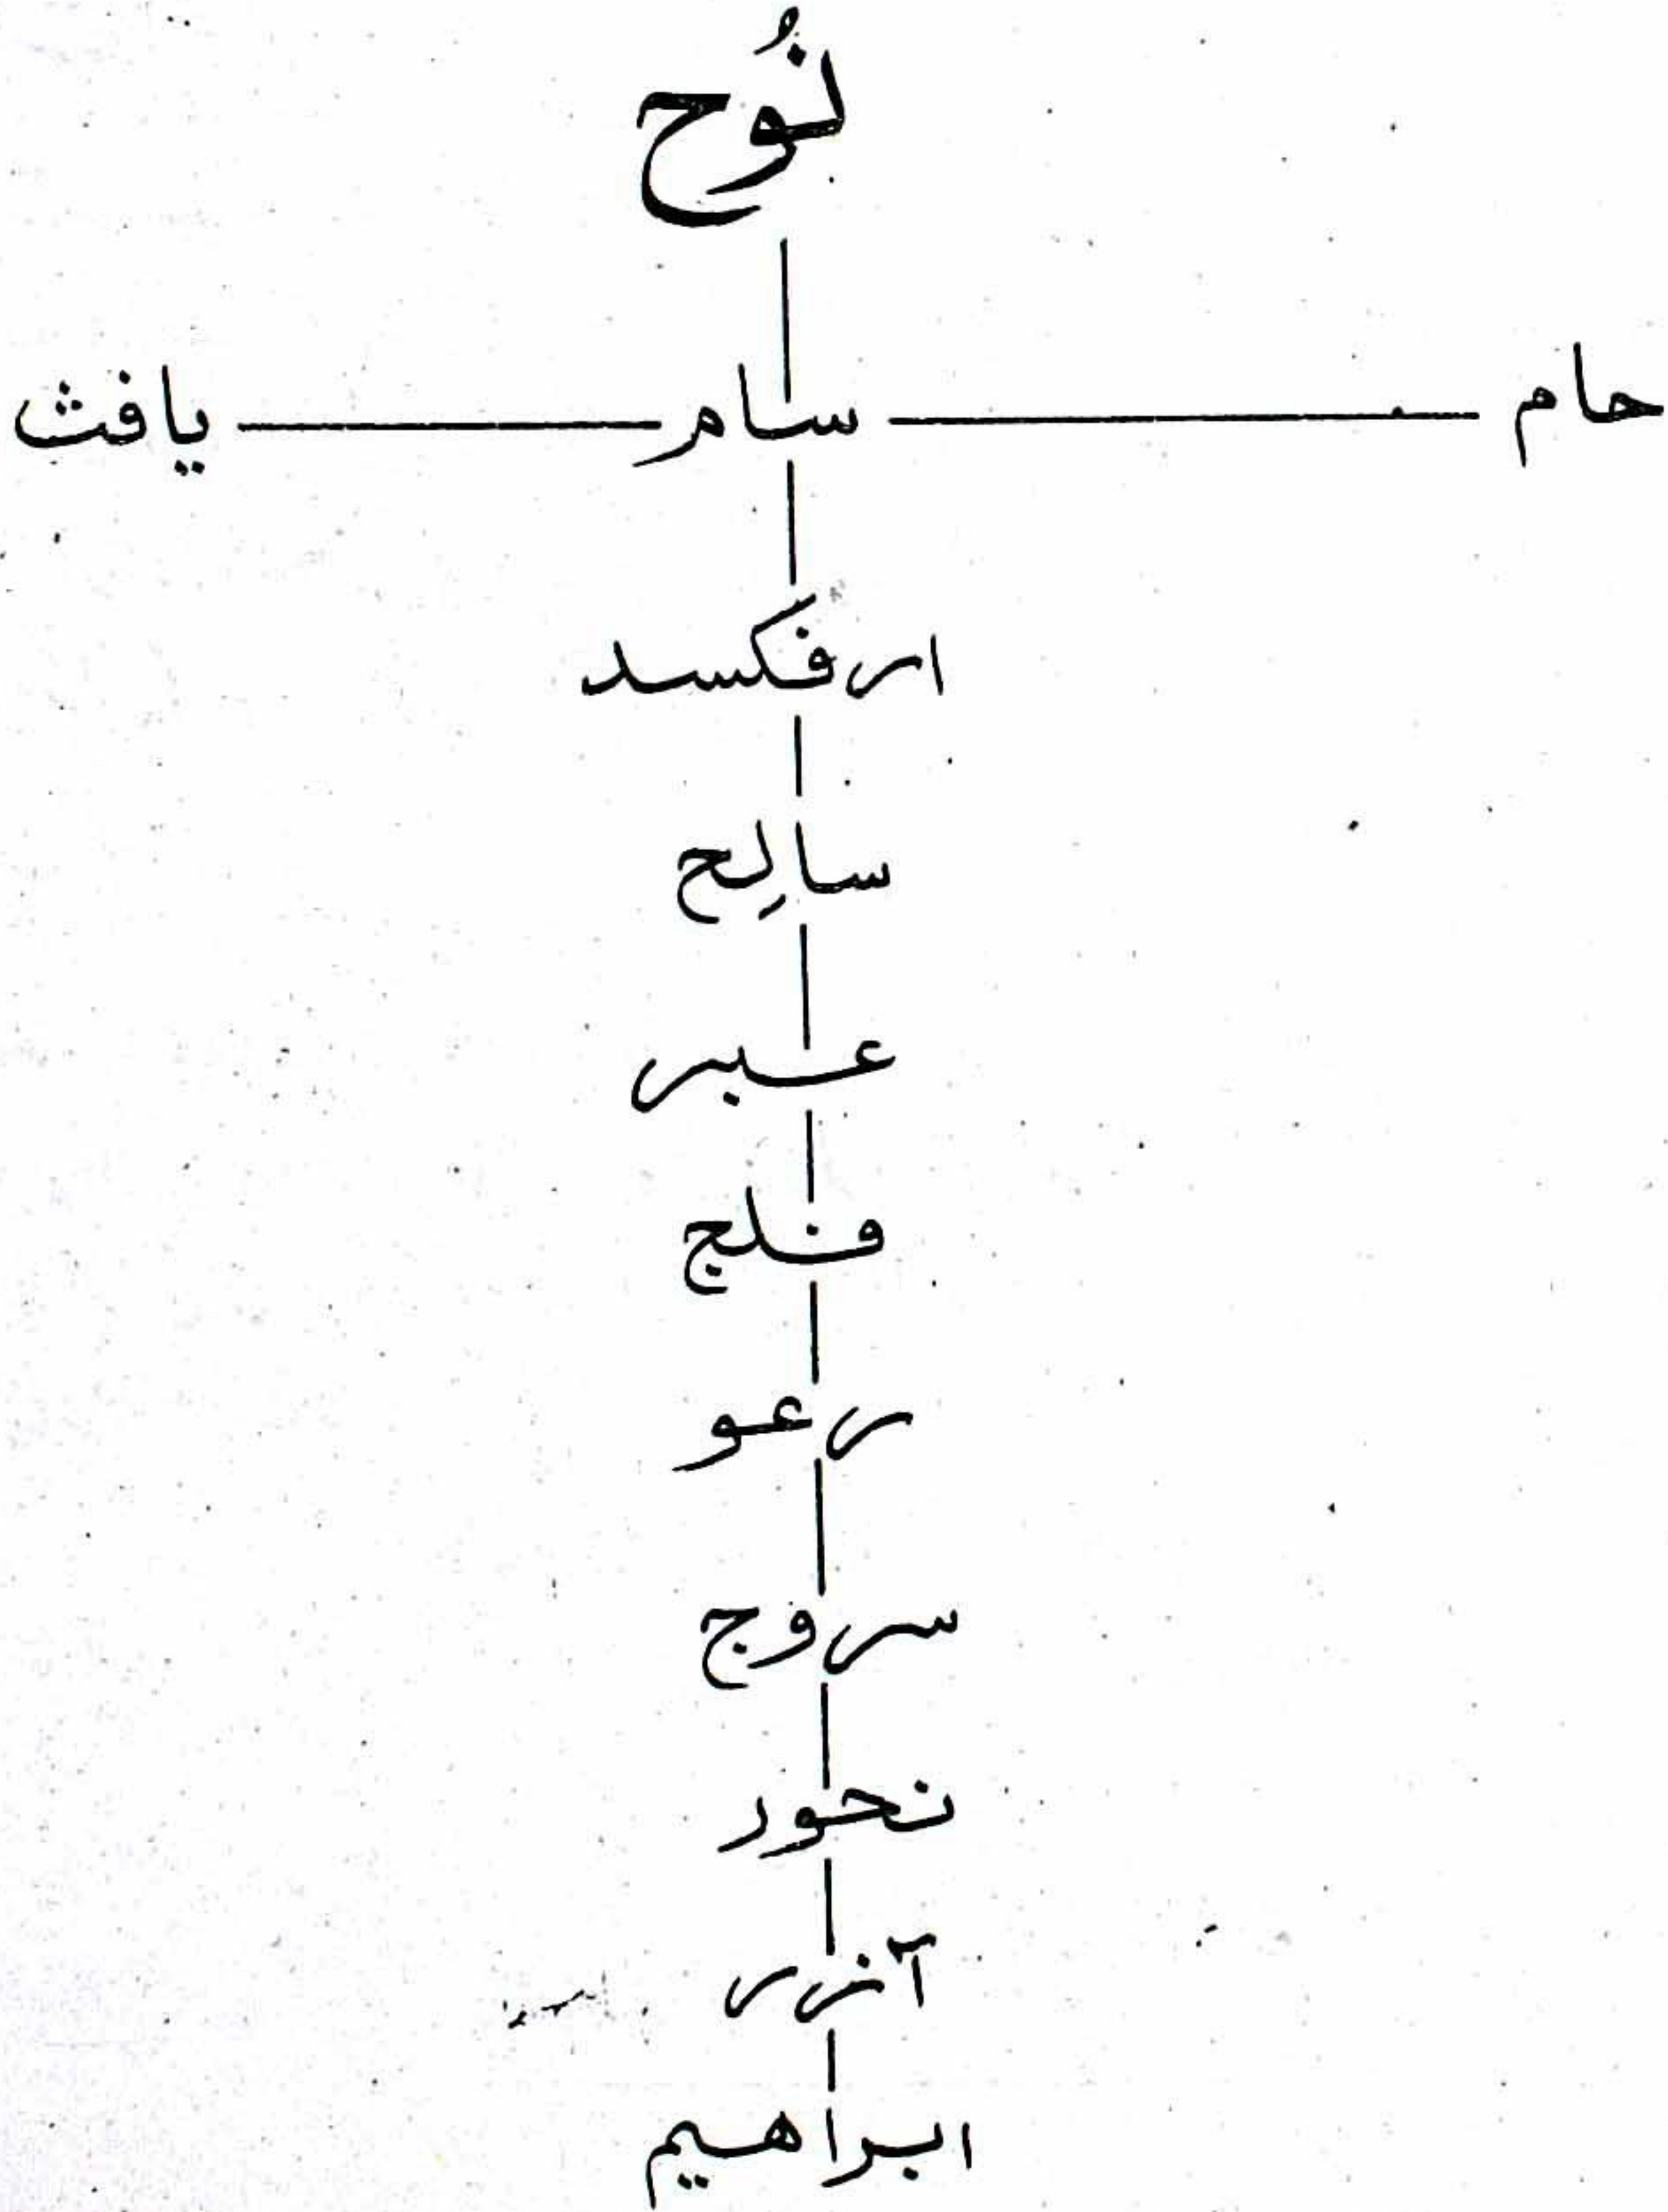 نُوح
حام سام يافث
ارفكسد
سالِح
عبر
فلج
رعو
سروج
نحور
آزر
ابراهيم